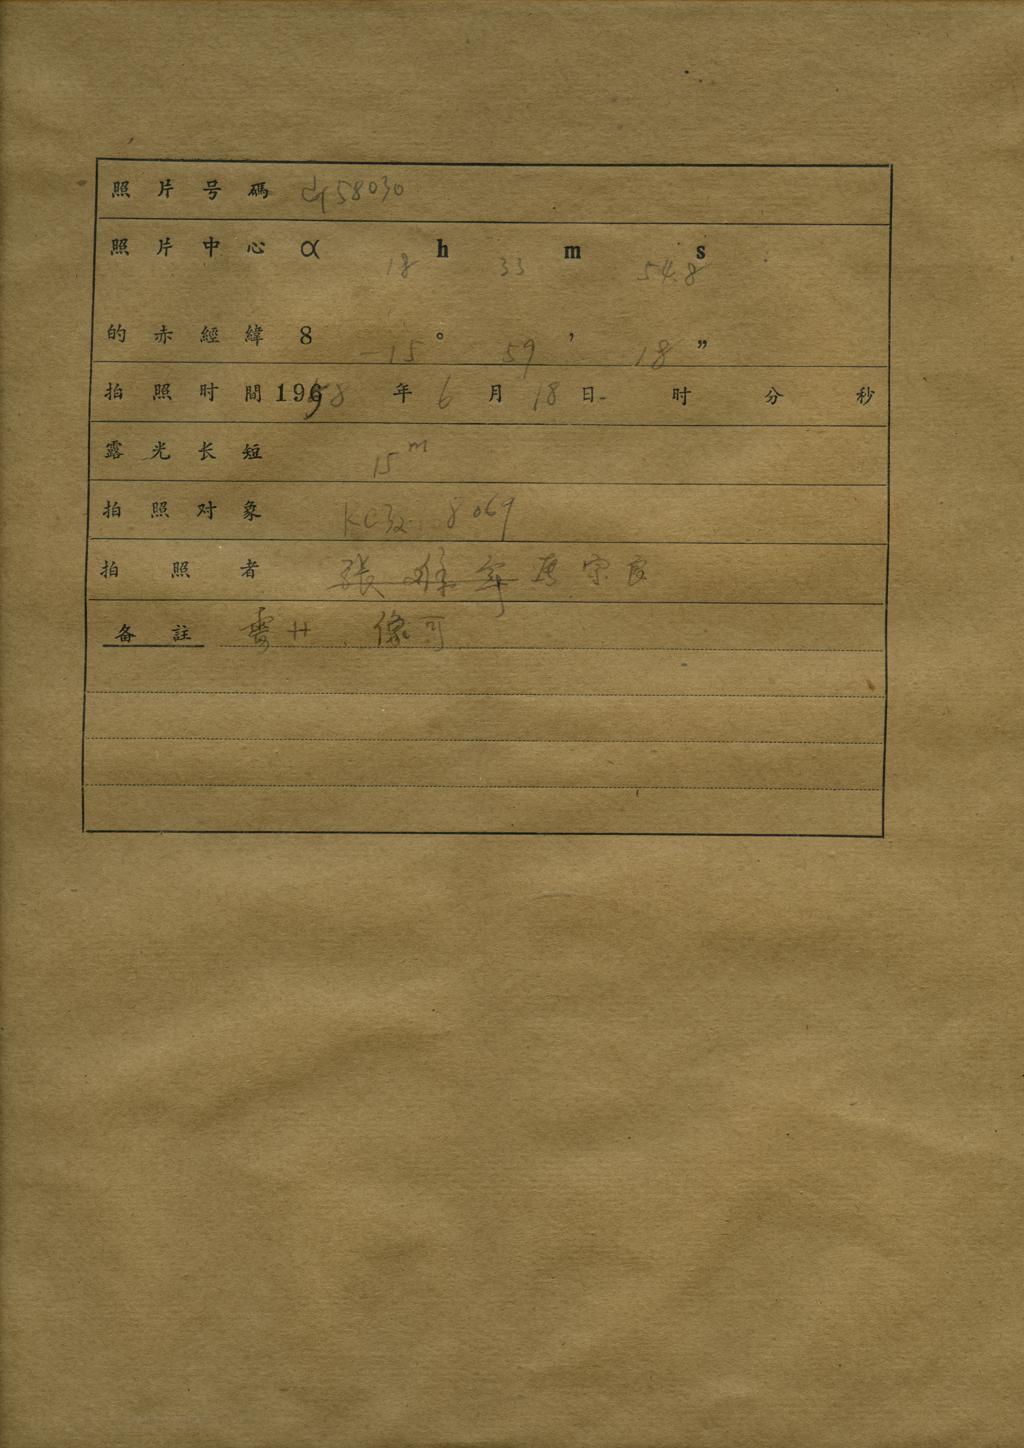 照片号碼 58030
照片中心 α 18 h 33 m 54.8 s
的赤經緯 8 -15 ° 59 ' 18 ”
拍照时間 1958 年 6 月 18 日 时 分 秒
露光长短 15 m
拍照对象 8069
拍照者 張 宗良
备註 像可